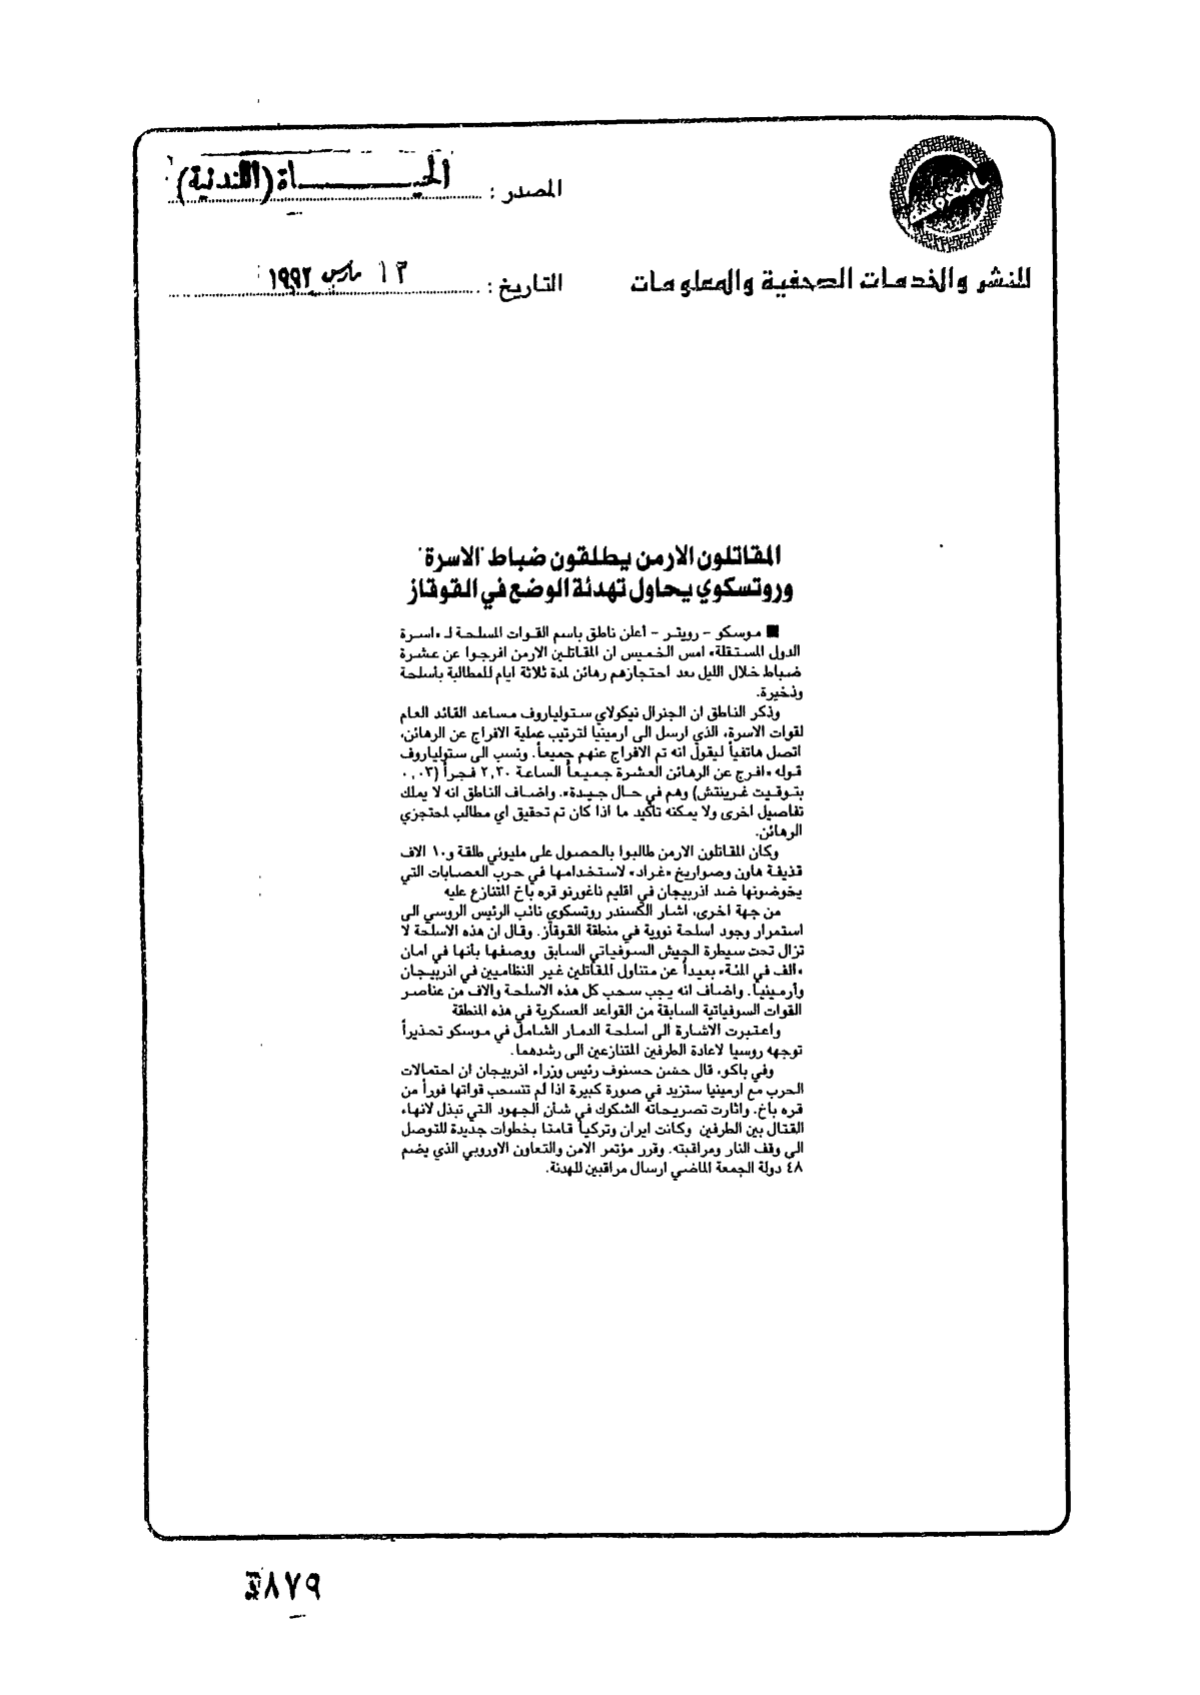 المصدر : الحيــــــاة (اللندنية)
للنشر والخدمات الصحفية والمعلومات
التاريخ : ١٣ مارس ١٩٩٢
المقاتلون الارمن يطلقون ضباط "الاسرة"
وروتسكوي يحاول تهدئة الوضع في القوقاز
■ موسكو - رويتر - أعلن ناطق باسم القوات المسلحة لـ «اسرة
الدول المستقلة» امس الخميس ان المقاتلين الارمن افرجوا عن عشرة
ضباط خلال الليل بعد احتجازهم رهائن لمدة ثلاثة ايام للمطالبة بأسلحة
وذخيرة.
وذكر الناطق ان الجنرال نيكولاي ستولياروف مساعد القائد العام
لقوات الاسرة، الذي ارسل الى ارمينيا لترتيب عملية الافراج عن الرهائن،
اتصل هاتفياً ليقول انه تم الافراج عنهم جميعاً. ونسب الى ستولياروف
قوله «افرج عن الرهائن العشرة جميعاً الساعة ٢,٣٠ فجراً (٠,٠٣
بتوقيت غرينتش) وهم في حال جيدة». واضاف الناطق انه لا يملك
تفاصيل اخرى ولا يمكنه تأكيد ما اذا كان تم تحقيق اي مطالب لمحتجزي
الرهائن.
وكان المقاتلون الارمن طالبوا بالحصول على مليوني طلقة و١٠ الاف
قذيفة هاون وصواريخ «غراد» لاستخدامها في حرب العصابات التي
يخوضونها ضد اذربيجان في اقليم ناغورنو قره باخ المتنازع عليه
من جهة اخرى، اشار الكسندر روتسكوي نائب الرئيس الروسي الى
استمرار وجود اسلحة نووية في منطقة القوقاز. وقال ان هذه الاسلحة لا
تزال تحت سيطرة الجيش السوفياتي السابق ووصفها بأنها في امان
«الف في المئة» بعيداً عن متناول المقاتلين غير النظاميين في اذربيجان
وأرمينيا. واضاف انه يجب سحب كل هذه الاسلحة والاف من عناصر
القوات السوفياتية السابقة من القواعد العسكرية في هذه المنطقة
واعتبرت الاشارة الى اسلحة الدمار الشامل في موسكو تحذيراً
توجهه روسيا لاعادة الطرفين المتنازعين الى رشدهما.
وفي باكو، قال حسن حسنوف رئيس وزراء اذربيجان ان احتمالات
الحرب مع ارمينيا ستزيد في صورة كبيرة اذا لم تنسحب قواتها فوراً من
قره باخ. واثارت تصريحاته الشكوك في شأن الجهود التي تبذل لانهاء
القتال بين الطرفين وكانت ايران وتركيا قامتا بخطوات جديدة للتوصل
الى وقف النار ومراقبته. وقرر مؤتمر الامن والتعاون الاوروبي الذي يضم
٤٨ دولة الجمعة الماضي ارسال مراقبين للهدنة.